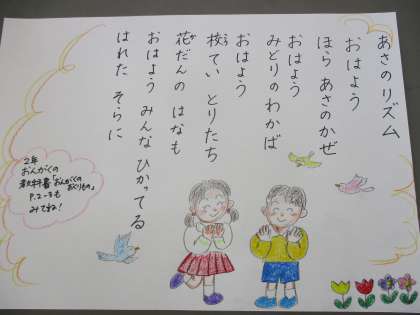 あさのリズム
おはよう
ほら あさのかぜ
おはよう
みどりのわかば
おはよう
校てい とりたち
花だんの はなも
おはよう みんな ひかってる
はれた そらに
2年
おんがくの
教科書「おんがくの
おくりもの」
P.2~3も
みてね!